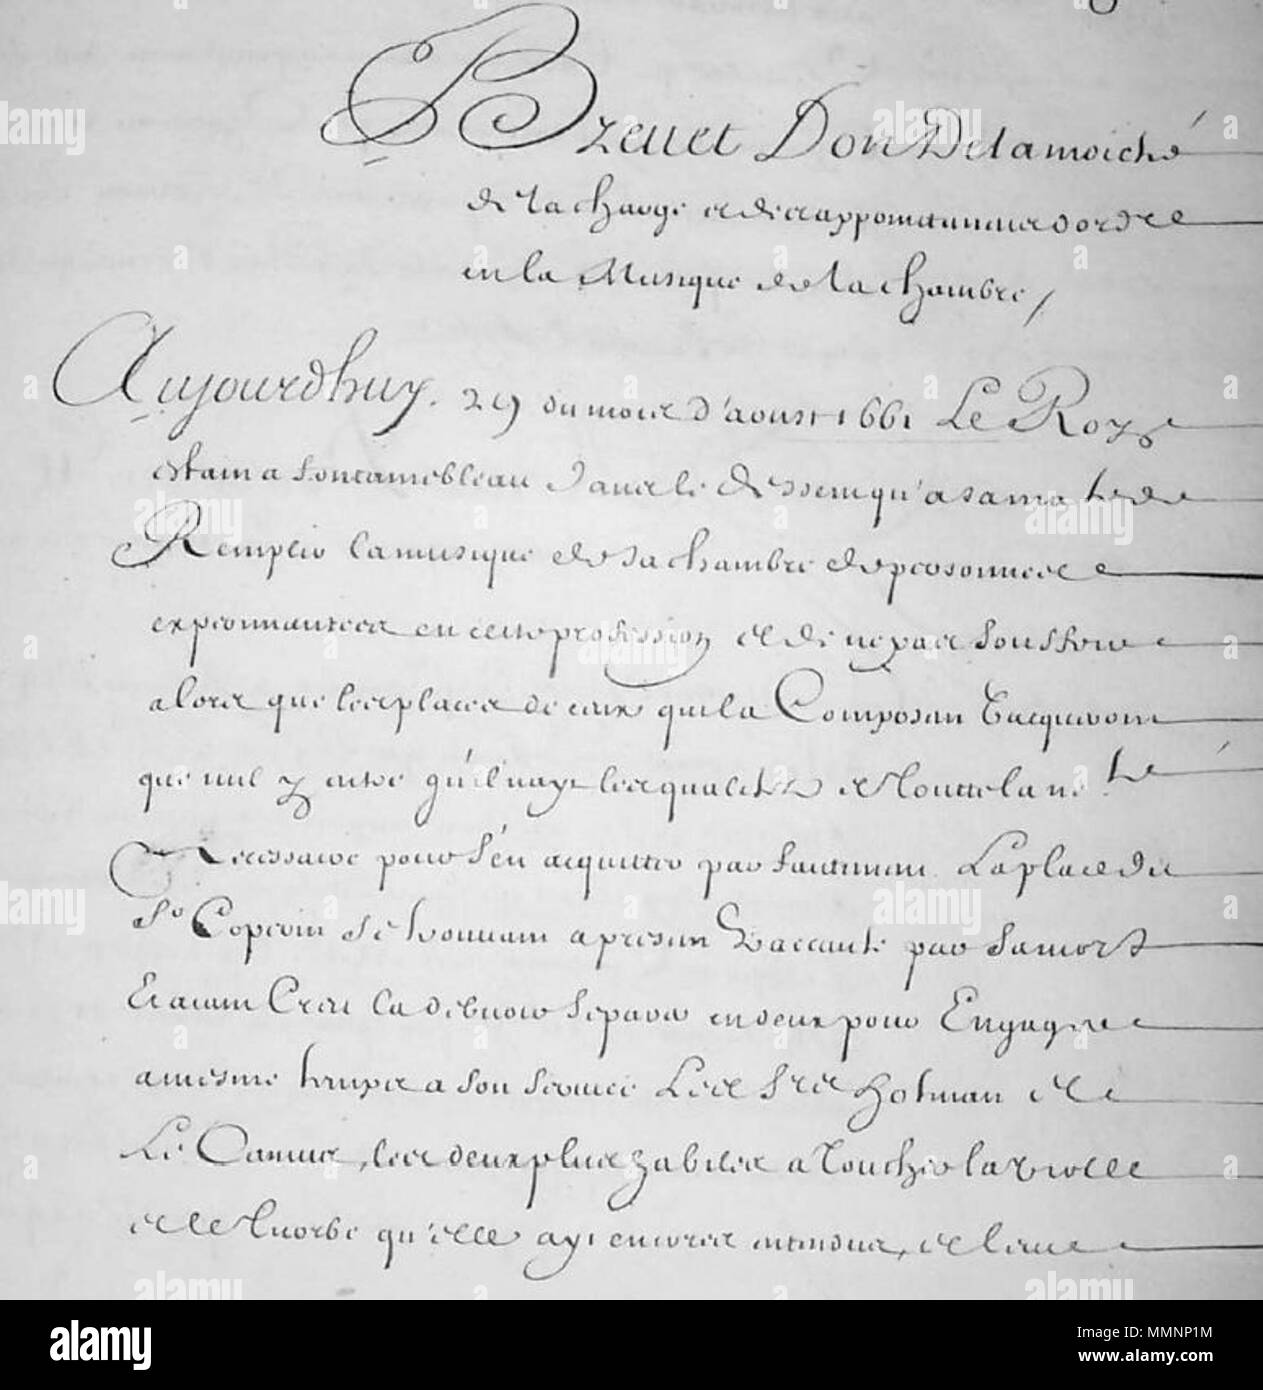 Breuet Don De la moictié
de la charge et des appointemens d'ordre
en la Musique de la chambre /
Aujourdhuy. 29 du mois d'aoust 1661 Le Roy
estant a fontainebleau dans le dessein qu'a sa ma.té de
Remplir la musique de sa chambre de personnes
experimantées en cette profession et de ne pas souffrir
alors que les places de ceux qui la Composent Vacqueront
que nul y entre qu'il naye les qualitez et toutte la
Necessaire pour s'en acquitter parfaitement La place du
Sr Coperin se trouvant a present Vaccante par sa mort
Et aiant Creu la debuoir separer en deux pour Engager
a mesme temps a son seruice Les Srs Hotman et
Le Camus, les deux plus habiles a toucher la violle
et le Tuorbe qu'elle ayt encores entendus, et leur
alamy
alamy
Image ID: MMNP1M
www.alamy.com